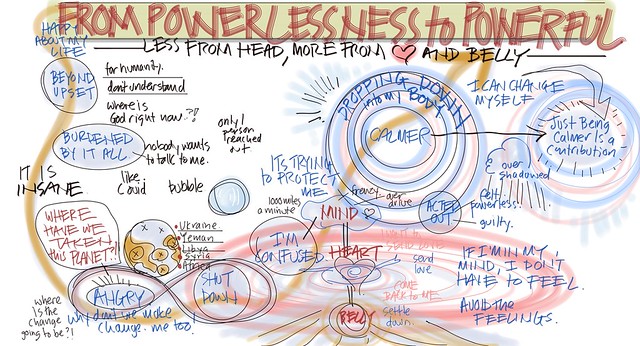 FROM POWERLESSNESS to POWERFUL
LESS FROM HEAD, MORE FROM AND BELLY
HAPPY
ABOUT MY
LIFE
BEYOND
UPSET
for humanity.
don't understand
where is
God right now?!
BURDENED
BY IT ALL
nobody wants
to talk to me.
only 1
person
reached
out
IT IS
INSANE
like
Covid
bubble
WHERE
HAVE WE
TAKEN
THIS PLANET?!
Ukraine
Yeman
Libya
Syria
Africa
ANGRY
SHUT
DOWN
where
is the
change
going to be?!
Why don't we make
change me too!
DROPPING DOWN
into my BODY
CALMER
I CAN CHANGE
MYSELF
Just Being
Calmer Is a
Contribution
ITS TRYING
TO PROTECT
ME
1000 miles
a minute
frenzy
over
drive
MIND
ACTED
OUT
& over
shadowed
felt
powerless
guilty.
I'M
CONFUSED
HEART
send
love
COME
BACK TO ME
BELLY
settle
down.
IF I'M IN MY
MIND, I DON'T
HAVE TO FEEL.
AVOID THE
FEELINGS.